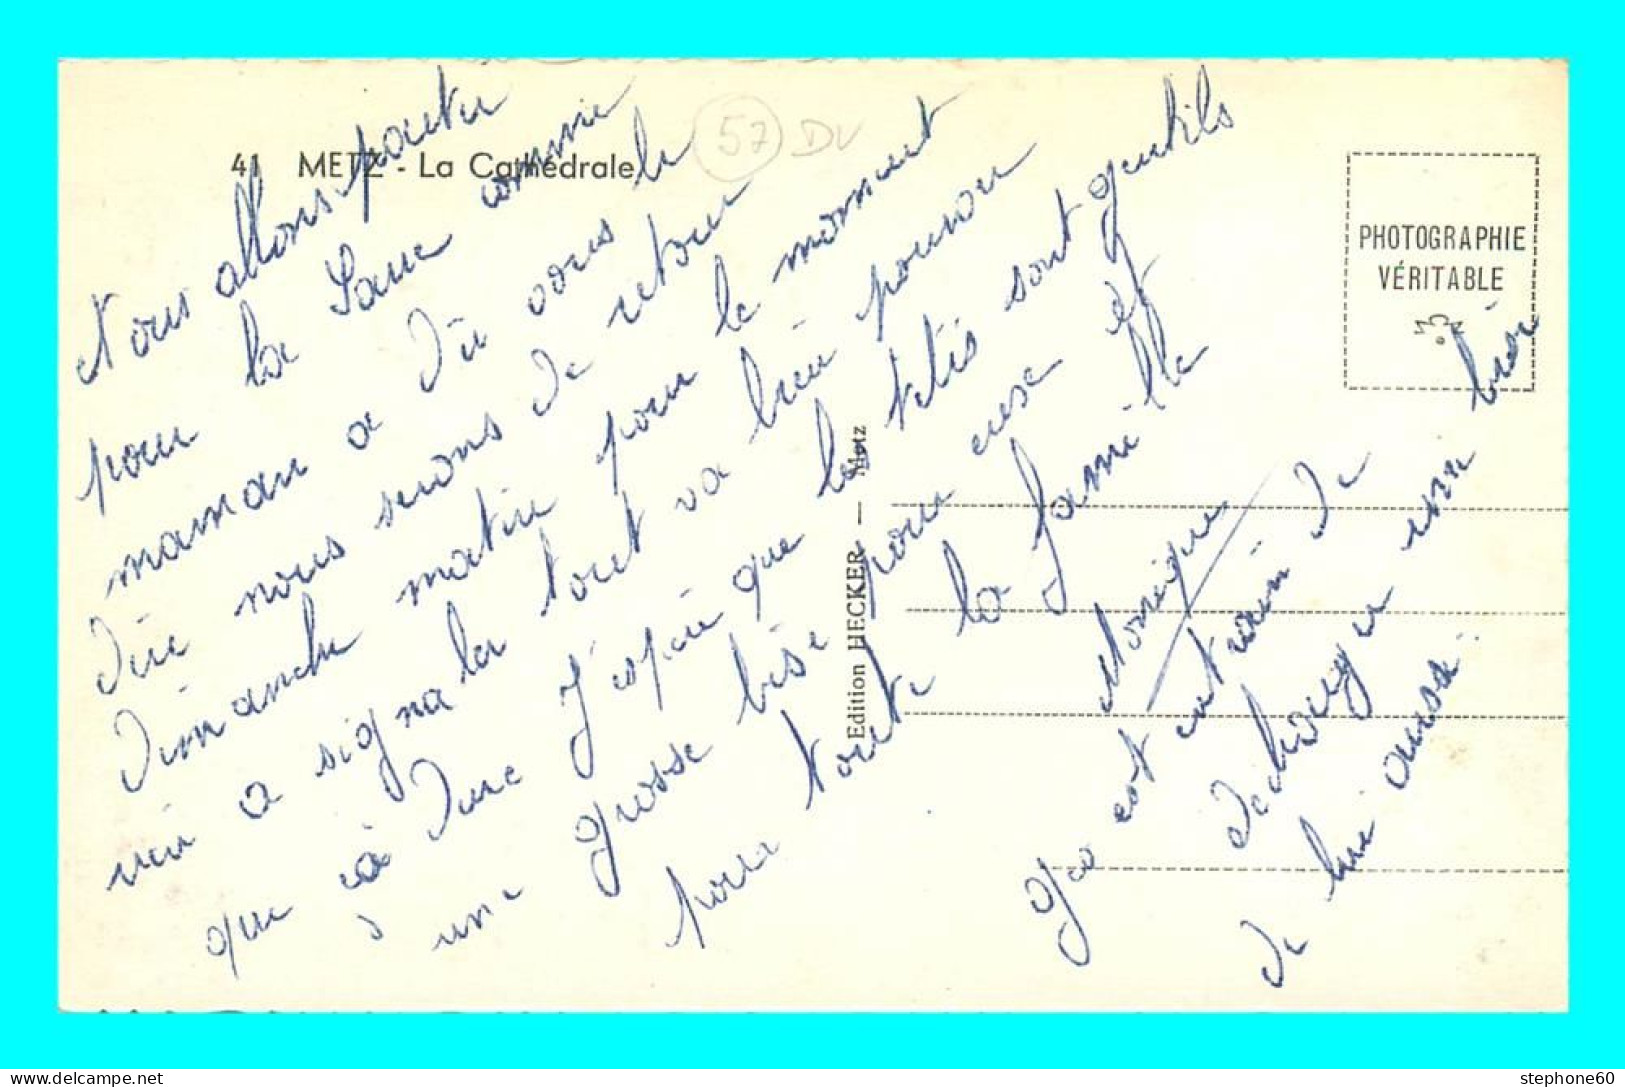 41 METZ - La Cathédrale
57 DV
PHOTOGRAPHIE
VÉRITABLE
Edition HECKER — Metz
Nous allons partir
pour la Sarre comme
maman a dû vous le
dire nous serons de retour
Dimanche matin pour le moment
rien a signaler tout va bien pouvou
que ça dure J'espère que les petits sont gentils
une grosse bise pour eux et
pour toute la famille
Monique
Jo est entrain de
de lui aussi
stephone60